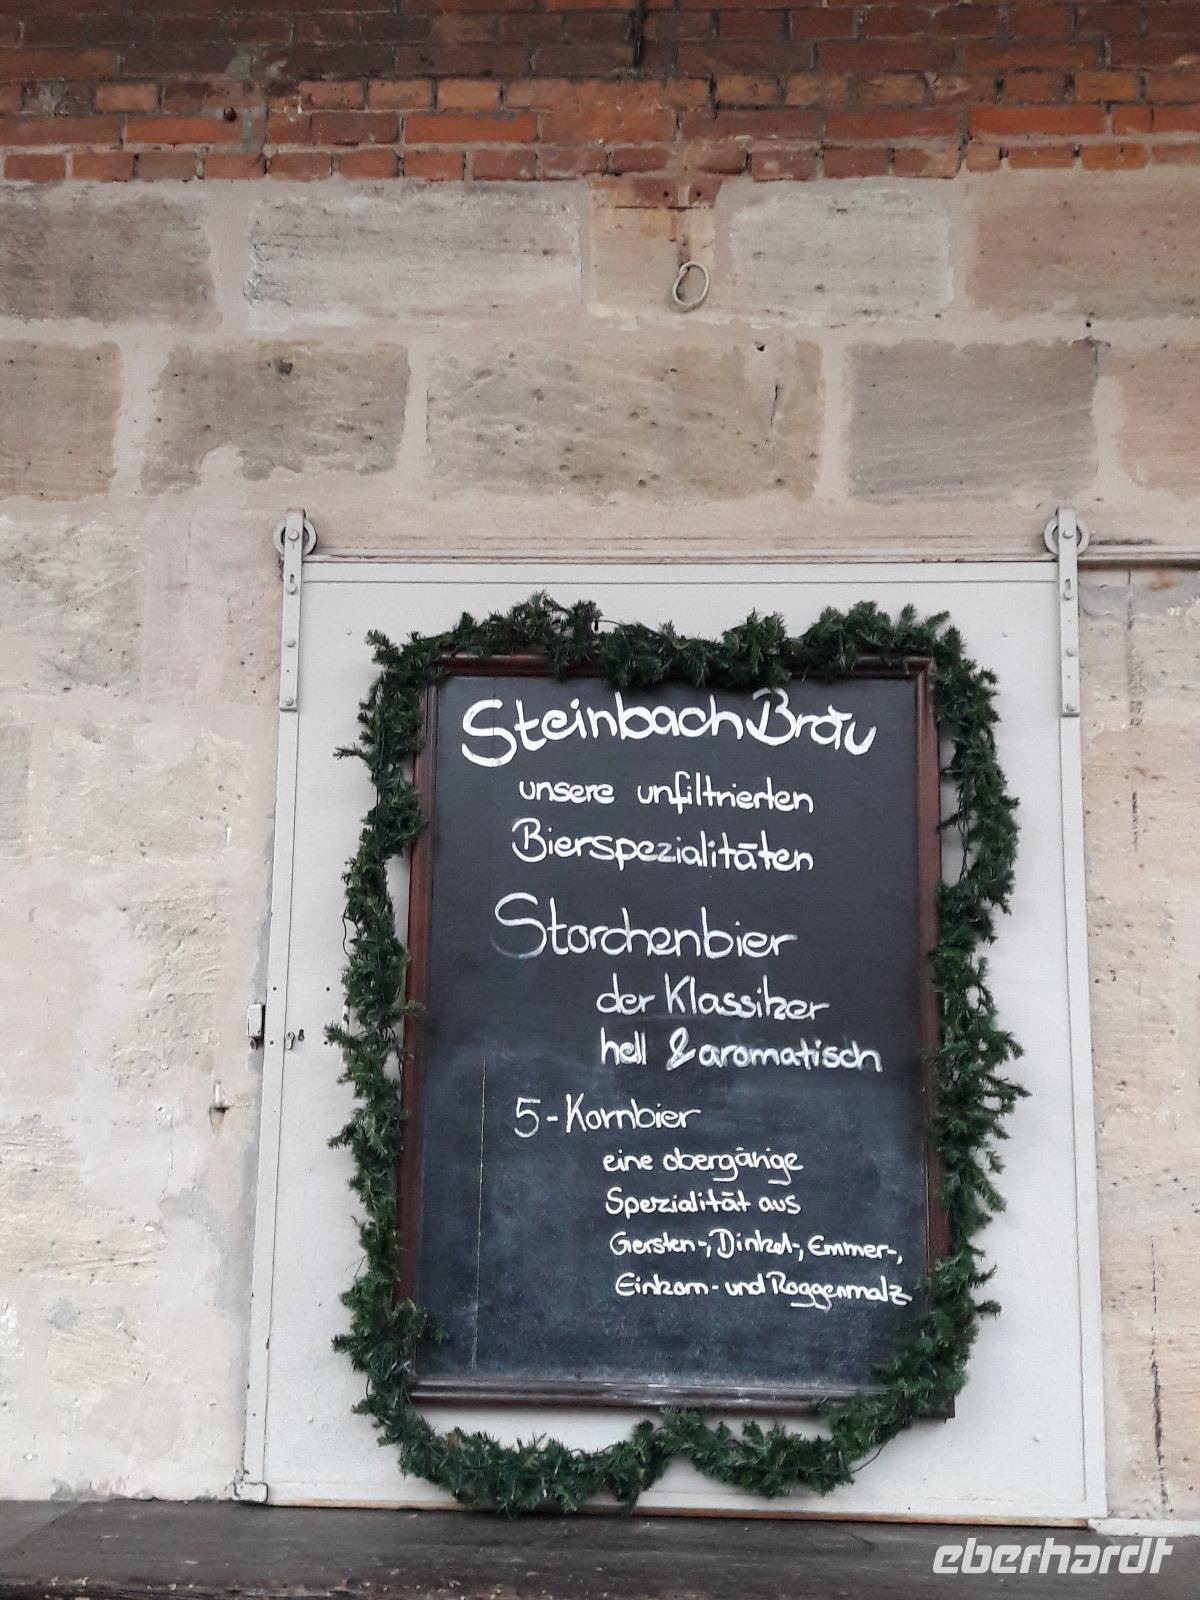 Steinbach Bräu
unsere unfiltrierten
Bierspezialitäten
Storchenbier
der Klassiker
hell & aromatisch
5-Kornbier
eine obergärige
Spezialität aus
Gersten-, Dinkel-, Emmer-,
Einkorn- und Roggenmalz
eberhardt